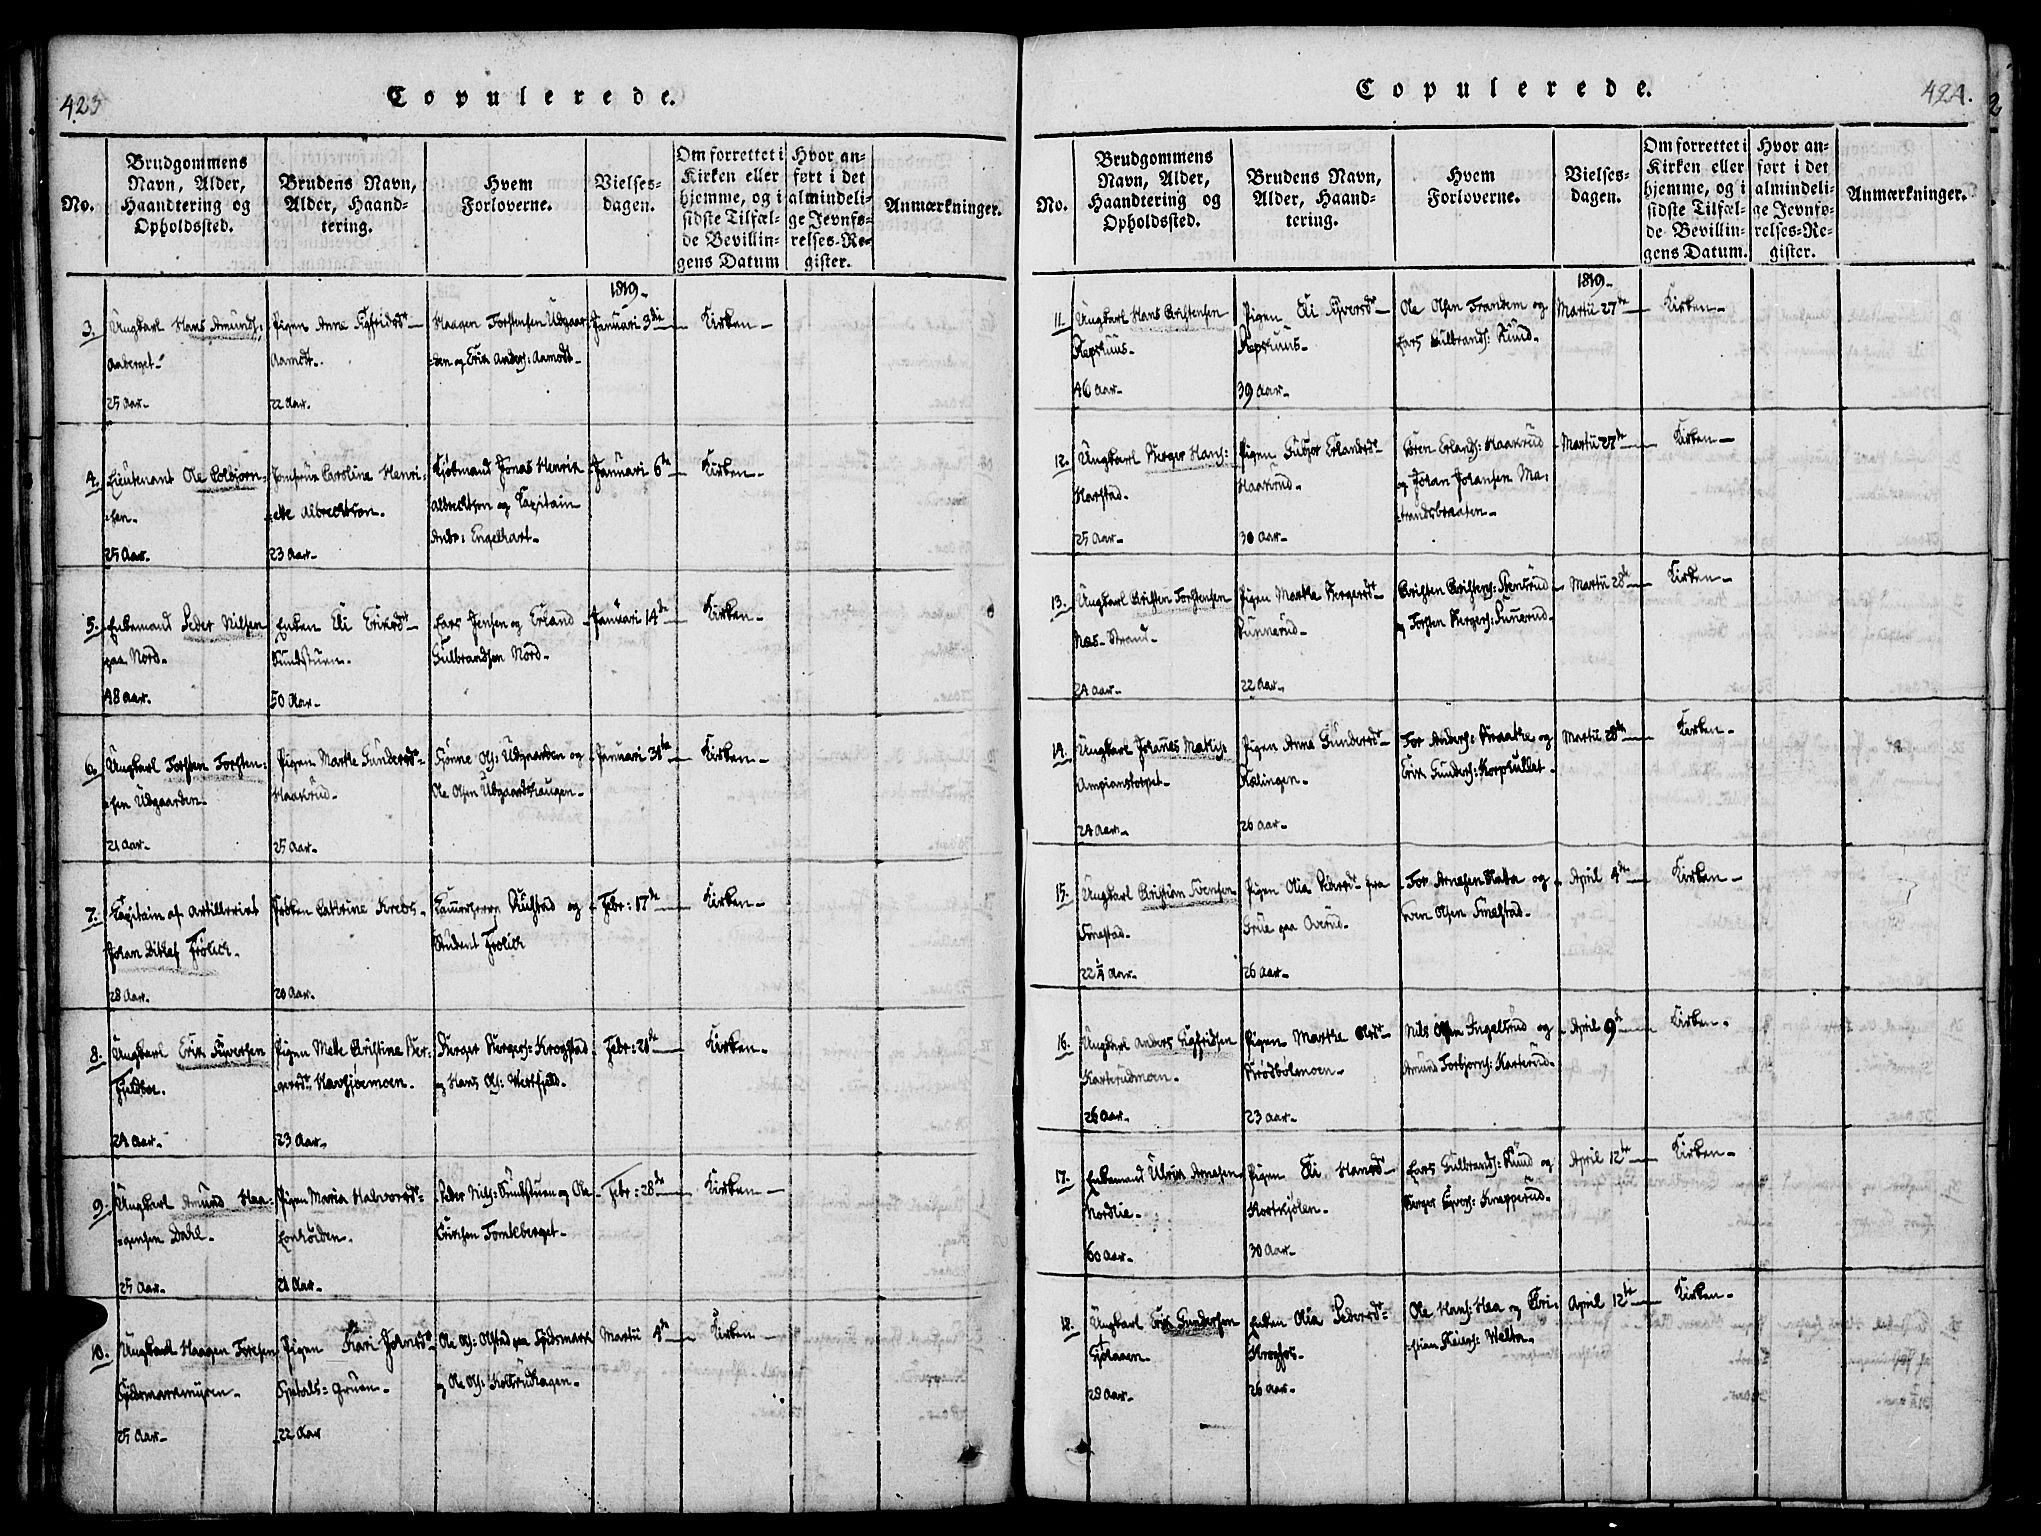 423
Copulerede.
No.
Brudgommens
Navn, Alder,
Haandtering og
Opholdssted.
Brudens Navn,
Alder, Haand-
tering.
Hvem
Forloverne.
Vielses-
dagen.
Om forrettet i
Kirken eller
hjemme, og i
sidste Tilfæl-
de Bevillin-
gens Datum
Hvor an-
ført i det
almindeli-
ge Jevnfø-
relses-Re-
gister.
Anmærkninger.
1819.
3.
Ungkarl Hans Amunds:
Aaberget
25 Aar.
Pigen Anne Sigfridsdt
Aamodt.
22 Aar.
Haagen Torstensen Udgaar
den og Erik Anders: Aamodt
Januari 3die
Kirken
4.
Lieutenant Ole Colbjørn-
sen.
25 Aar.
Jomfrue Caroline Henri-
ette Albrechtson.
23 Aar
Kjøbmand Jonas Henrik
Albrechtson og Capitain
Andr: Engelhart
Januari 6te
Kirken
5.
Enkemand Peder Nilsen
paa Nord.
48 Aar.
Enken Eli Eriksdt
Sundstuen.
50 Aar
Lars Jensen og Erland
Gulbrandsen Nord
Januari 14de
Kirken
6.
Ungkarl Torsten Torsten-
sen Udgaarden.
21 Aar.
Pigen Marthe Gundersdt
Haakrud.
25 Aar.
Tjønne Ols: Udgaarden og
Ole Olsen Udgaardshaugen
Januari 31te
Kirken
7.
Capitain af Artilleriet
Johan Ditlef Frölich.
28 Aar.
Frøken Cathrine Krebs
20 Aar.
Cammerherre Rustad og
Student Frolich
Febr: 17de
Kirken
8.
Ungkarl Erik Siversen
Fjeldboe.
24 Aar.
Pigen Mette Christine Ber-
gersdt Havsjøemoen.
23 Aar.
Berger Bergers: Krogstad
og Hans Ols: Westfjeld
Febr: 21de
Kirken
9.
Ungkarl Amund Haa-
gensen Dahl.
25 Aar.
Pigen Maria Halvorsdt
21 Aar
Peder Nils: Sundstuen og Ole
Febr: 28de
Kirken
10.
Ungkarl Haagen Toresen
25 Aar
Pigen Kari Johnsdt
Spetals-gruen
22 Aar
Ole Ols: Olstad paa Eidsmark
og Ole Ols: Kolterudhagen
Martii 4de
Kirken
Copulerede.
424.
No.
Brudgommens
Navn, Alder,
Haandtering og
Opholdssted.
Brudens Navn,
Alder, Haand-
tering.
Hvem
Forloverne.
Vielses-
dagen.
Om forrettet i
Kirken eller
hjemme, og i
sidste Tilfæl-
de Bevillin-
gens Datum.
Hvor an-
ført i det
almindeli-
ge Jevnfø-
relses-Re-
gister.
Anmærkninger.
1819.
11.
Ungkarl Hans Christensen
Repshuus
46 Aar
Pigen Eli Syversdt
Repshuus
39 Aar
Ole Olsen Frandem og
Lars Gulbrands: Rund
Martii 27de
Kirken
12.
Ungkarl Berger Hans:
Harstad.
25 Aar
Pigen Gubjør Erlandsdt
Haakrud.
30 Aar
Soren Erlands: Haakrud
og Johan Johansen Ma-
strandsbraaten
Martii 27de
Kirken
13.
Ungkarl Christen Torstensen
Næs-Strand
24 Aar
Pigen Marthe Bergersdt
Sunnerud.
22 Aar
og Torsten Bergers: Sunnerud
Martii 28de
Kirken
14.
Ungkarl Johannes Mathis:
Ampianstorpet
24 Aar
Pigen Anne Gundersdt
Kælingen.
26 Aar
Tor Anders: Braathe og
Erik Gunders: Korphullet
Martii 28de
Kirken
15.
Ungkarl Christian Svensen
Smestad.
22¼ Aar
Pigen Olia Pedersdt fra
Grue paa Overud.
26 Aar
Tor Arnesen Raba og
Sven Olsen Smestad
April 4de
Kirken
16.
Ungkarl Anders Sigfridsen
Karterudmoen.
26 Aar
Pigen Marthe Olsdt
Brødbølmoen
23 Aar
Nils Olsen Ingelsrud og
Amund Torbjorns: Karterud
April 9de
Kirken
17.
Enkemand Ulrik Arnesen
Nordlie.
60 Aar
Pigen Eli Hansdt
Kortkjølen.
30 Aar
Lars Gulbrands: Rund og
Berger Syvers: Knapperud
April 12te
Kirken
18.
Ungkarl Erik Gundersen
28 Aar
Enken Olia Pedersdt
Krogfos
26 Aar
Ole Hans: Haa og Chri-
stian Keiers: Welta
April 12te
Kirken